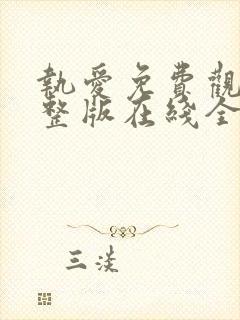 執愛免費觀
整版在綫全
三淡